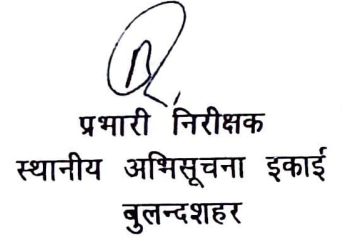 प्रभारी निरीक्षक
स्थानीय अभिसूचना इकाई
बुलन्दशहर